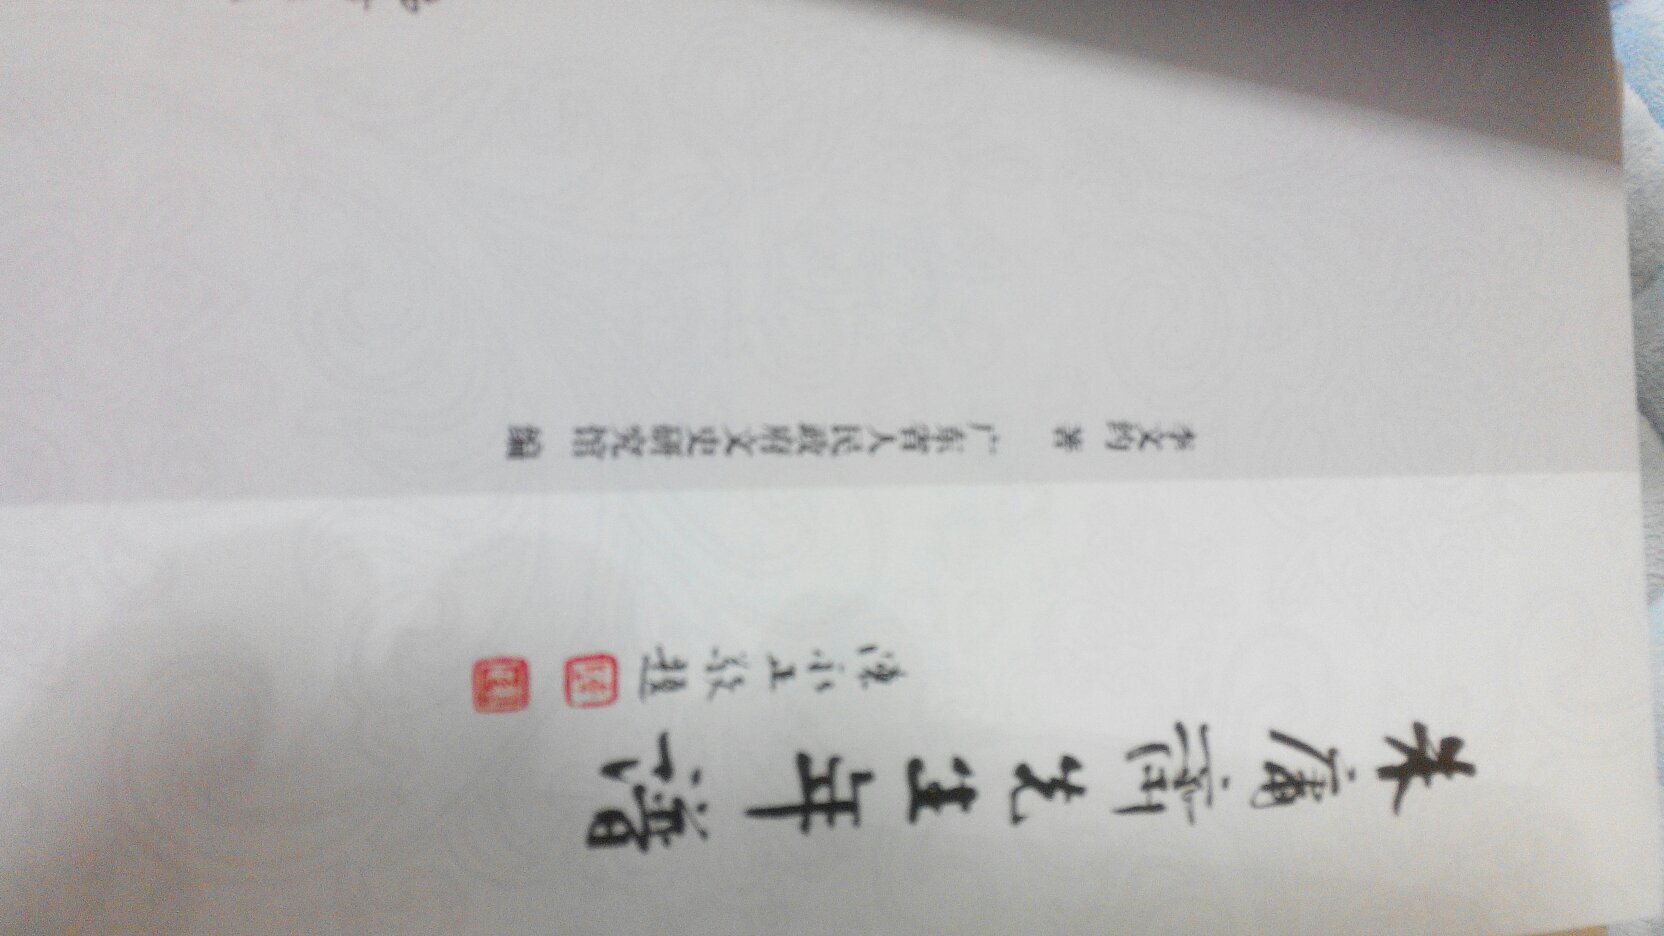 朱庸斋先生年谱
陈永正敬题
李文约 著 广东省人民政府文史研究馆 编